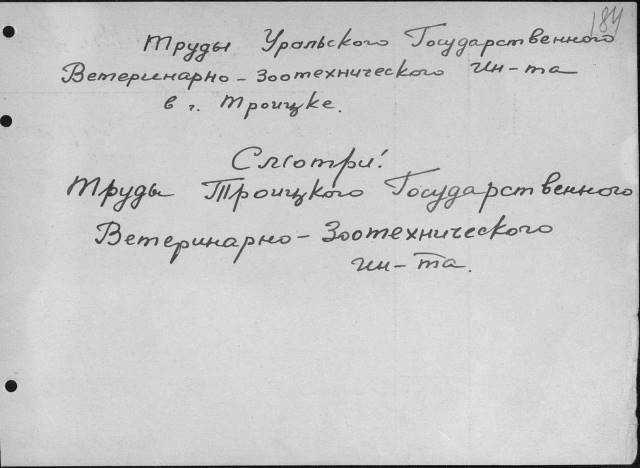 184
Труды Уральского Государственного
Ветеринарно-Зоотехнического Ин-та
в г. Троицке.
Смотри!
Труды Троицкого Государственного
Ветеринарно-Зоотехнического
ин-та.